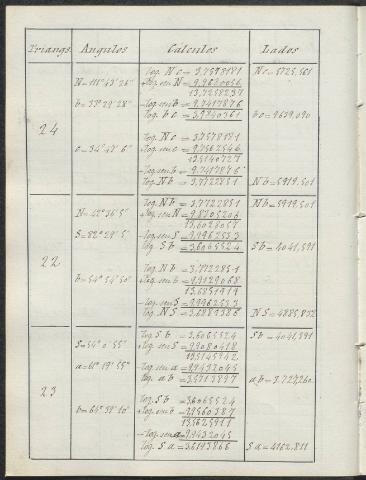 Triangs. Angulos Calculos Lados
log. N c = 3,7578181 N c = 5725,561
N = 111° 43' 26" + log. sen N = 9,9680056
13,7258237
b = 33° 29' 28" - log. sen b = 9,7417876
log. b c = 3,9840361 b c = 9639,090
24
log. N c = 3,7578181
c = 34° 47' 6" + log. sen c = 9,7562546
13,5140727
- log. sen b = 9,7417876
log. N b = 3,7722851 N b = 5919,501
log. N b = 3,7722851 N b = 5919,501
N = 42° 36' 5" + log. sen N = 9,8305206
13,6028057
S = 82° 29' 5" - log. sen S = 9,9962533
log. S b = 3,6065524 S b = 4041,591
22
log. N b = 3,7722851
b = 54° 54' 50" + log. sen b = 9,9129068
13,6851919
- log. sen S = 9,9962533
log. N S = 3,6889386 N S = 4885,832
log. S b = 3,6065524 S b = 4041,591
S = 54° 0' 55" + log. sen S = 9,9080418
13,5145942
a = 61° 19' 55" - log. sen a = 9,9432045
log. a b = 3,5713897 a b = 3.727,260
23
log. S b = 3,6065524
b = 64° 39' 10" + log. sen b = 9,9560387
13,5625911
- log. sen a = 9,9432045
log. S a = 3,6193866 S a = 4162,811